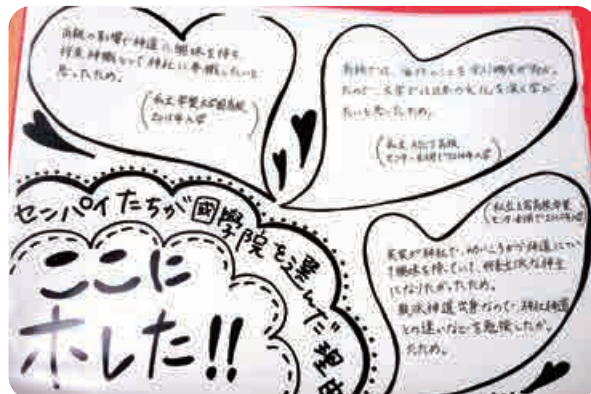 両親の影響で神道に興味を持ち
将来神職として神社に奉職したいと
思ったため。
私立
2014年入学
高校では、海外のことを学ぶ機会が多かっ
たので、大学では日本の文化を深く学び
たいと思ったため。
私立
センター利用で2014年入学
私立
センター利用で
実家が神社で、幼いころから神道につい
て興味を持っていて、将来立派な神主
になりたかったため。
教派神道出身なので、神社神道
との違いなどを勉強したかっ
たため。
センパイたちが國學院を選んだ理由
ここに
ホレた!!